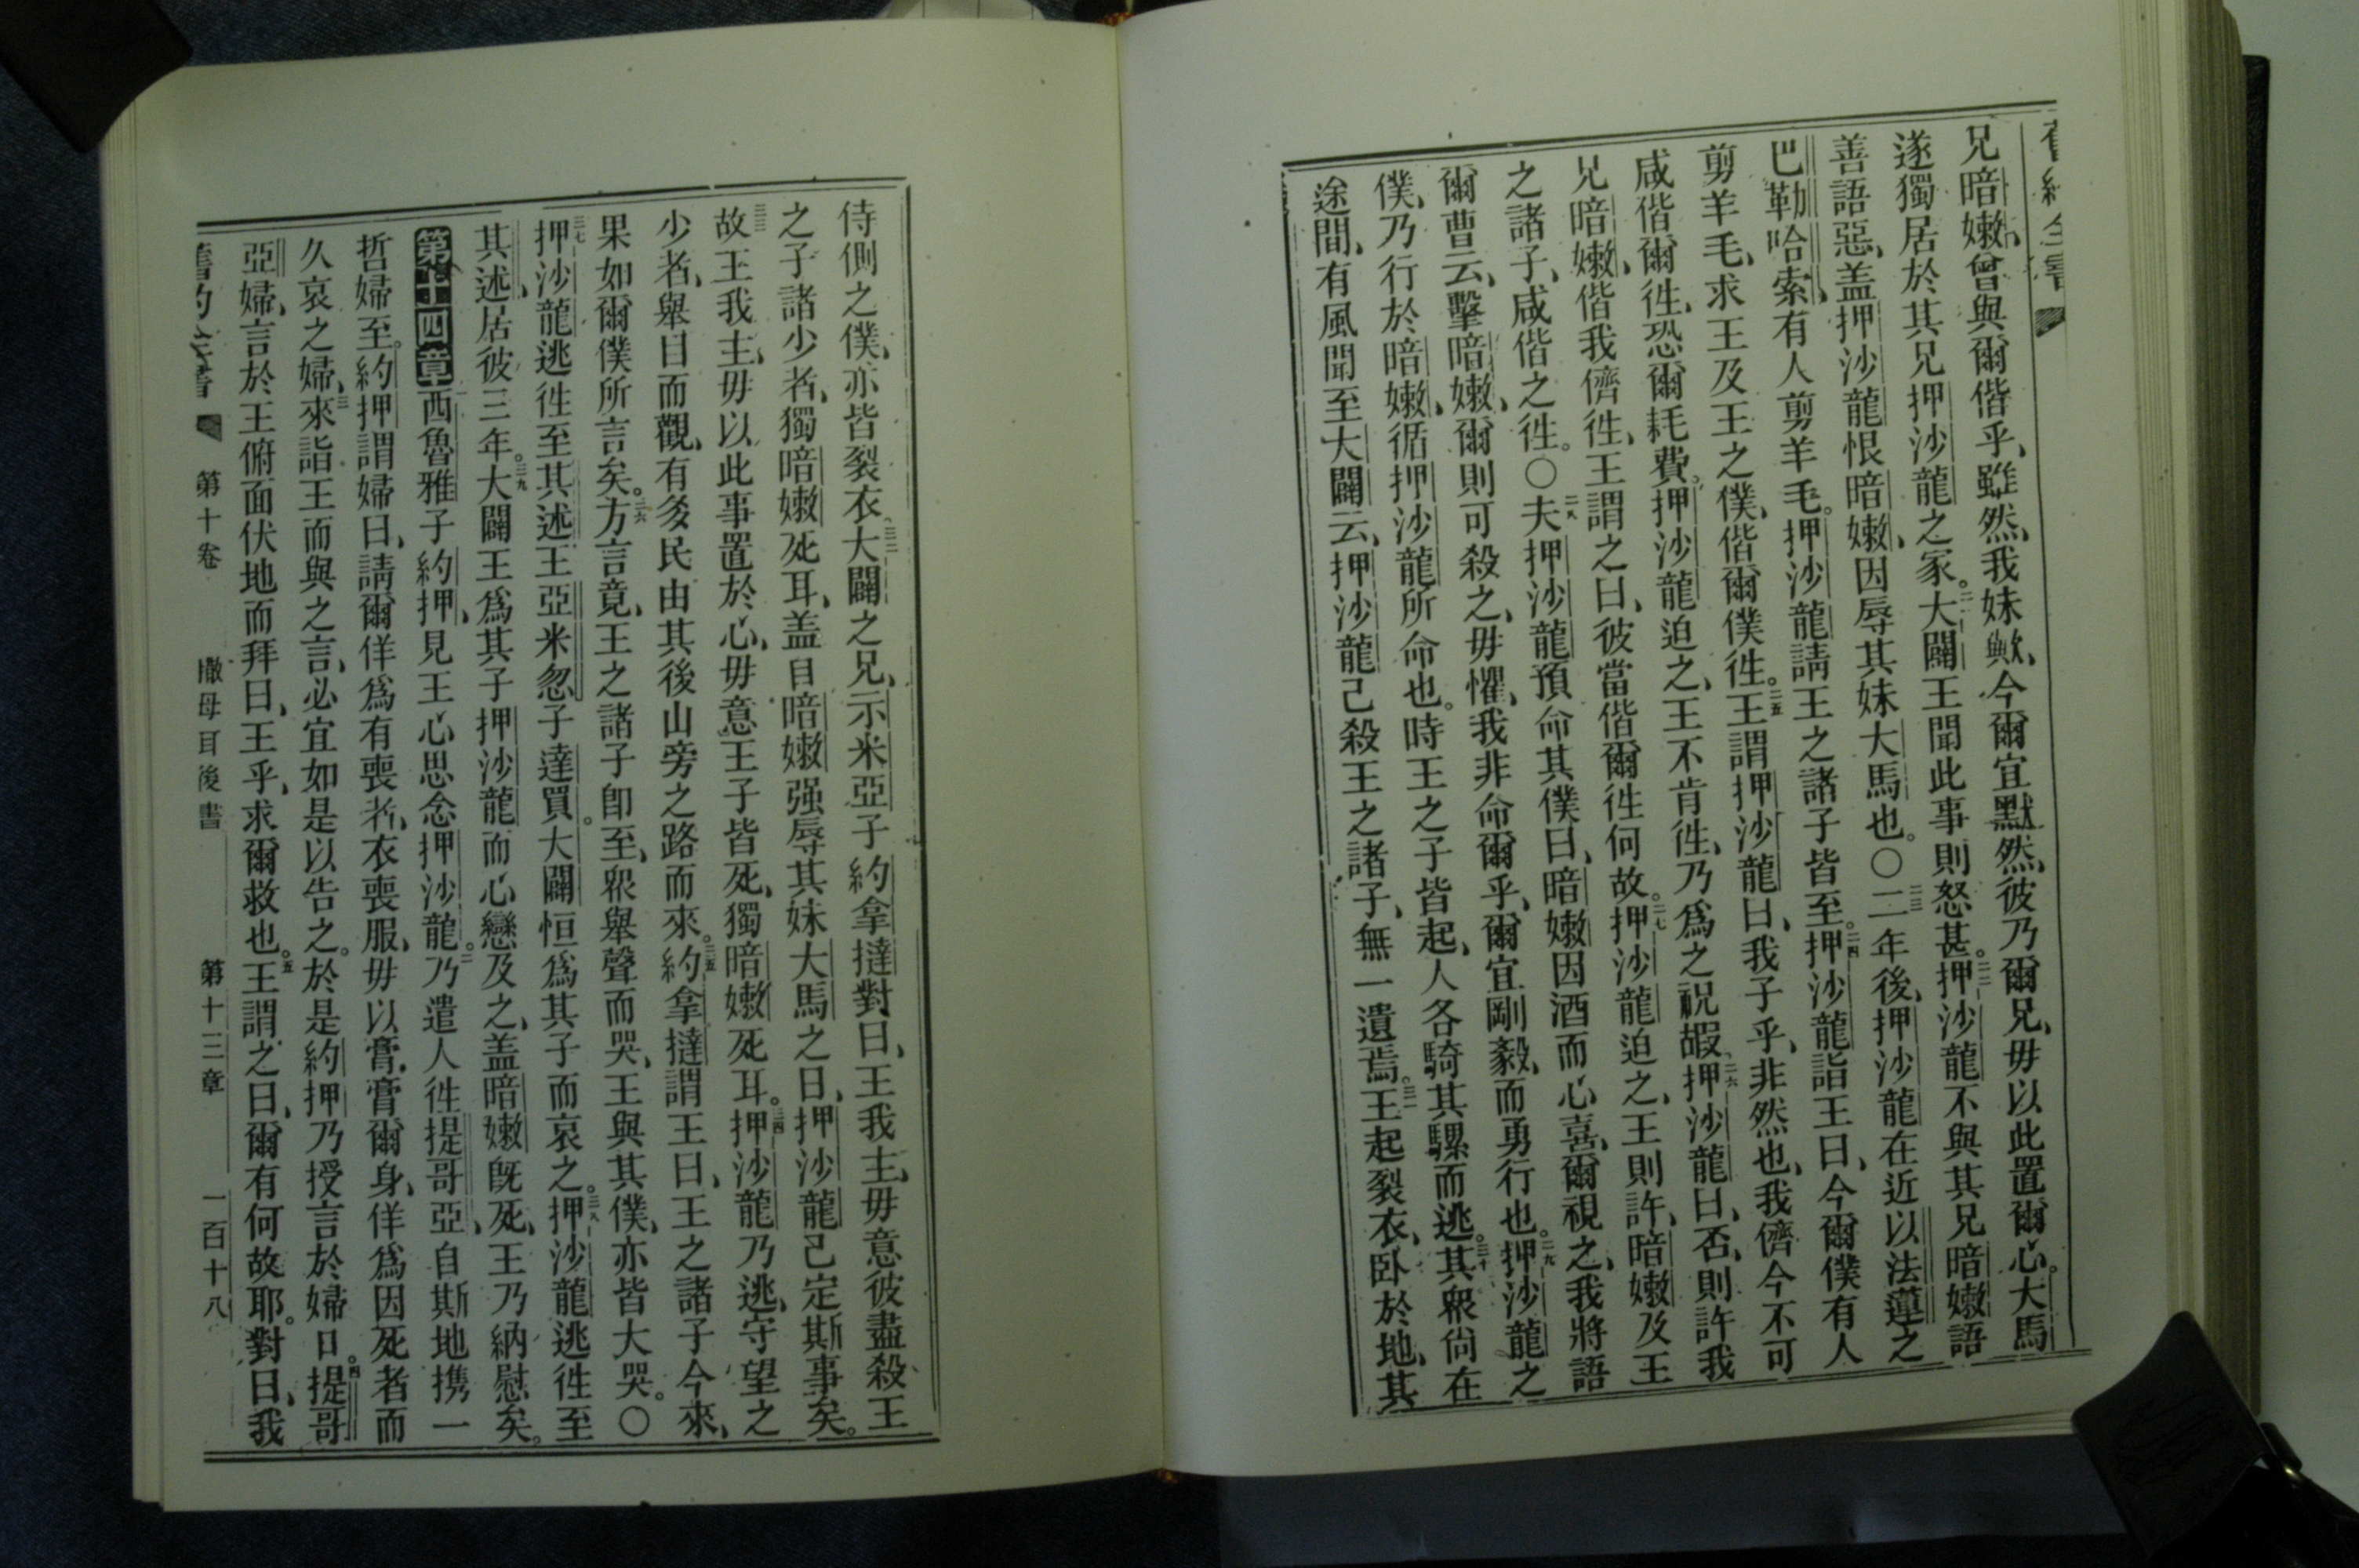 兄暗嫩、曾與爾偕乎、雖然、我妹歟、今爾宜默然、彼乃爾兄、毋以此置爾心。大馬
遂獨居於其兄押沙龍之家。二一大闢王聞此事則怒甚。二二押沙龍不與其兄暗嫩語
善語惡、盖押沙龍恨暗嫩、因辱其妹大馬也。〇二三二年後、押沙龍在近以法蓮之
巴勒哈索、有人剪羊毛。押沙龍請王之諸子皆至。二四押沙龍詣王曰、今爾僕有人
剪羊毛、求王及王之僕、偕爾僕徃。二五王謂押沙龍曰、我子乎、非然也、我儕今不可
咸偕爾徃、恐爾耗費。押沙龍迫之、王不肯徃、乃爲之祝嘏。二六押沙龍曰、否、則許我
兄暗嫩、偕我儕徃、王謂之曰、彼當偕爾徃何故。二七押沙龍迫之、王則許、暗嫩及王
之諸子、咸偕之徃。〇二八夫押沙龍預命其僕曰、暗嫩因酒而心喜、爾視之、我將語
爾曹云、擊暗嫩、爾則可殺之、毋懼、我非命爾乎、爾宜剛毅、而勇行也。二九押沙龍之
僕、乃行於暗嫩、循押沙龍所命也。時王之子皆起、人各騎其騾而逃。三十其衆尙在
途間、有風聞至大闢云、押沙龍已殺王之諸子、無一遺焉。三一王起裂衣、卧於地、其
侍側之僕、亦皆裂衣。三二大闢之兄、示米亞子約拿撻對曰、王我主、毋意彼盡殺王
之子諸少者、獨暗嫩死耳、盖自暗嫩强辱其妹大馬之日、押沙龍已定斯事矣。
三三故王我主、毋以此事置於心、毋意王子皆死、獨暗嫩死耳。三四押沙龍乃逃、守望之
少者、舉目而觀、有多民由其後山旁之路而來。三五約拿撻謂王曰、王之諸子今來、
果如爾僕所言矣。三六方言竟、王之諸子卽至、衆舉聲而哭、王與其僕、亦皆大哭。〇
三七押沙龍逃徃至其述王亞米忽子達買。大闢恒爲其子而哀之。三八押沙龍逃徃至
其述、居彼三年。三九大闢王爲其子押沙龍而心戀及之、盖暗嫩旣死、王乃納慰矣。
第十四章一西魯雅子約押、見王心思念押沙龍。二乃遣人徃提哥亞、自斯地携一
哲婦至。約押謂婦曰、請爾佯爲有喪者、衣喪服、毋以膏膏爾身、佯爲因死者而
久哀之婦、三來詣王而與之言、必宜如是以告之。於是約押乃授言於婦口。四提哥
亞婦、言於王俯面伏地而拜曰、王乎、求爾救也。五王謂之曰、爾有何故耶。對曰、我
舊約全書 第十卷 撒母耳後書 第十三章 一百十八